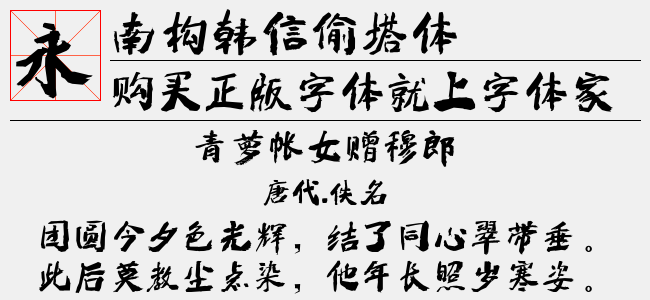 永
南构韩信偷塔体
购买正版字体就上字体家
青萝帐女赠穆郎
唐代.佚名
团圆今夕色光辉，结了同心翠带垂。
此后莫教尘点染，他年长照岁寒姿。